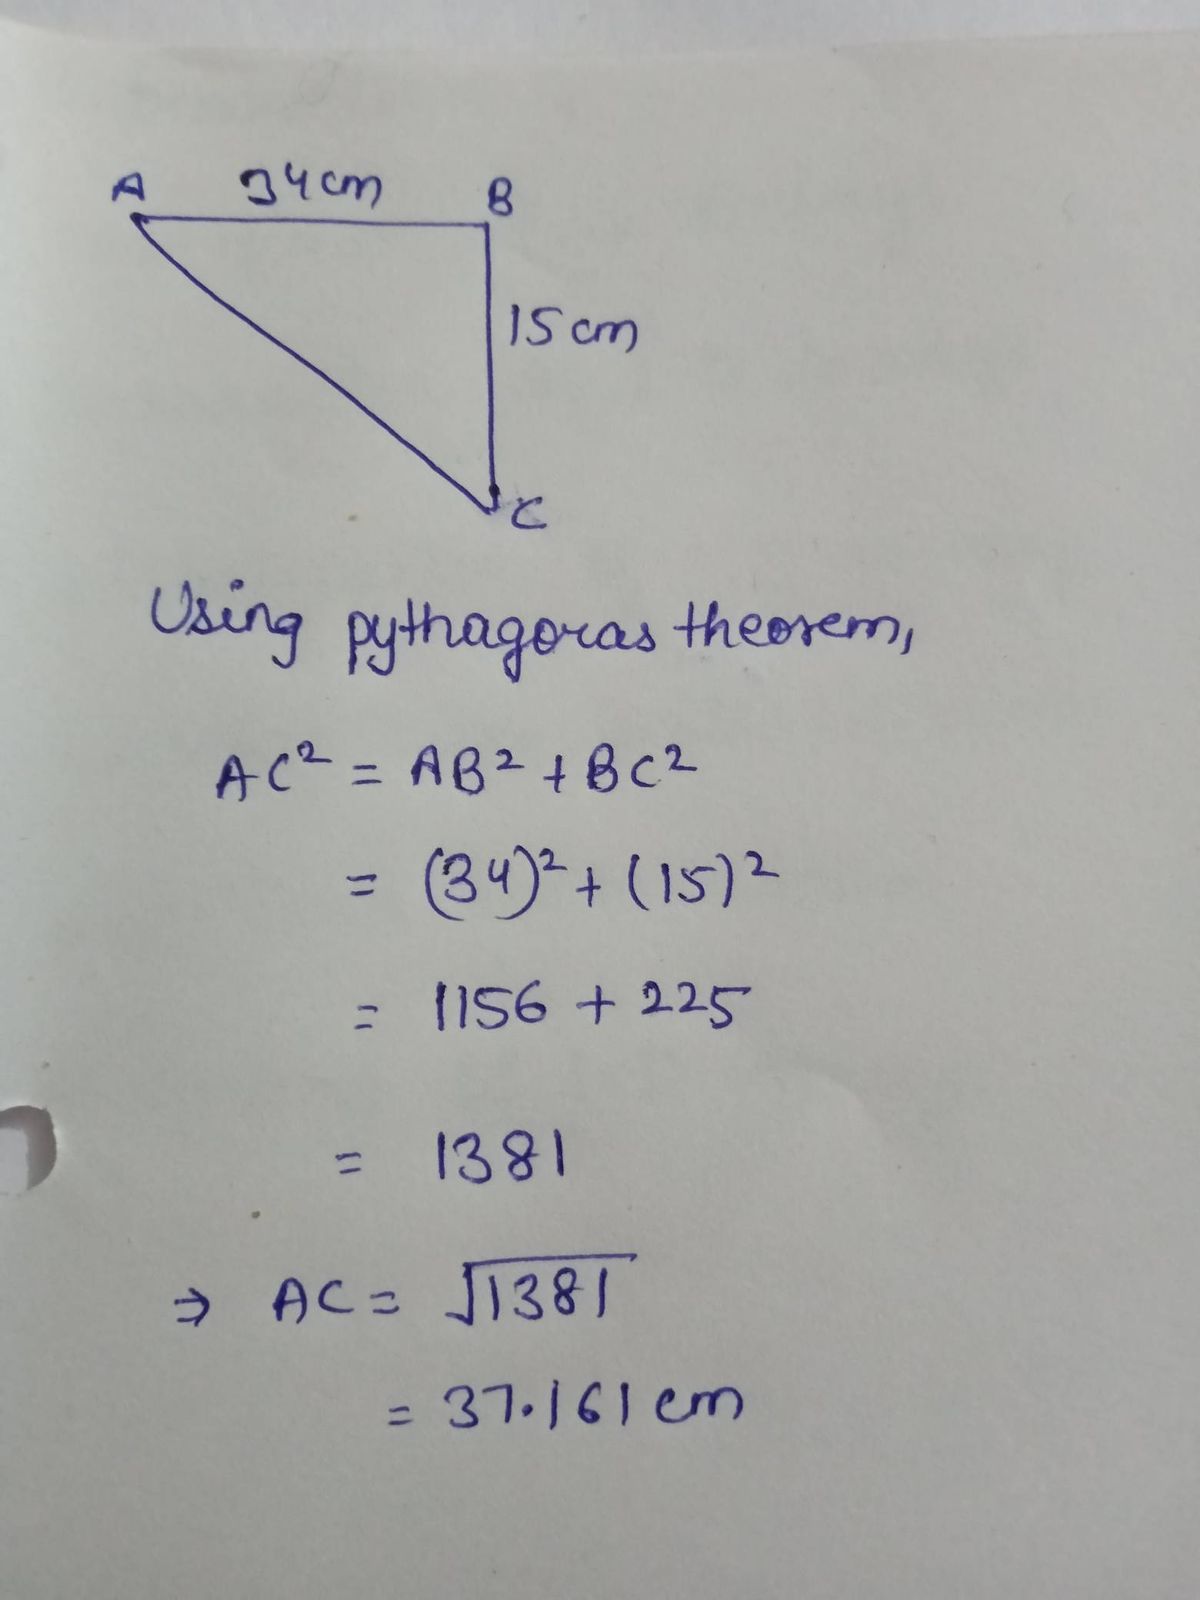 A 34cm B
15cm
C
Using pythagoras theorem,
AC² = AB² + BC²
= (34)² + (15)²
= 1156 + 225
= 1381
⇒ AC = √1381
= 37.161 cm